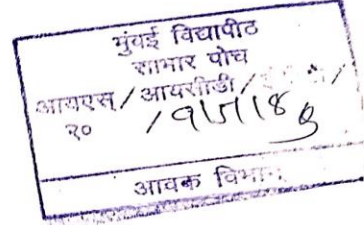 मुंबई विद्यापीठ
साभार पोच
आयएस/आयसीडी/
२०
आवक विभाग